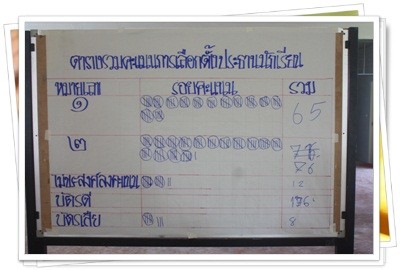 ตารางรวมคะแนนการเลือกตั้งประธานนักเรียน
หมายเลข รอยคะแนน รวม
๑ 65
๒ 76
ไม่ประสงค์ลงคะแนน 12
บัตรดี
บัตรเสีย 8